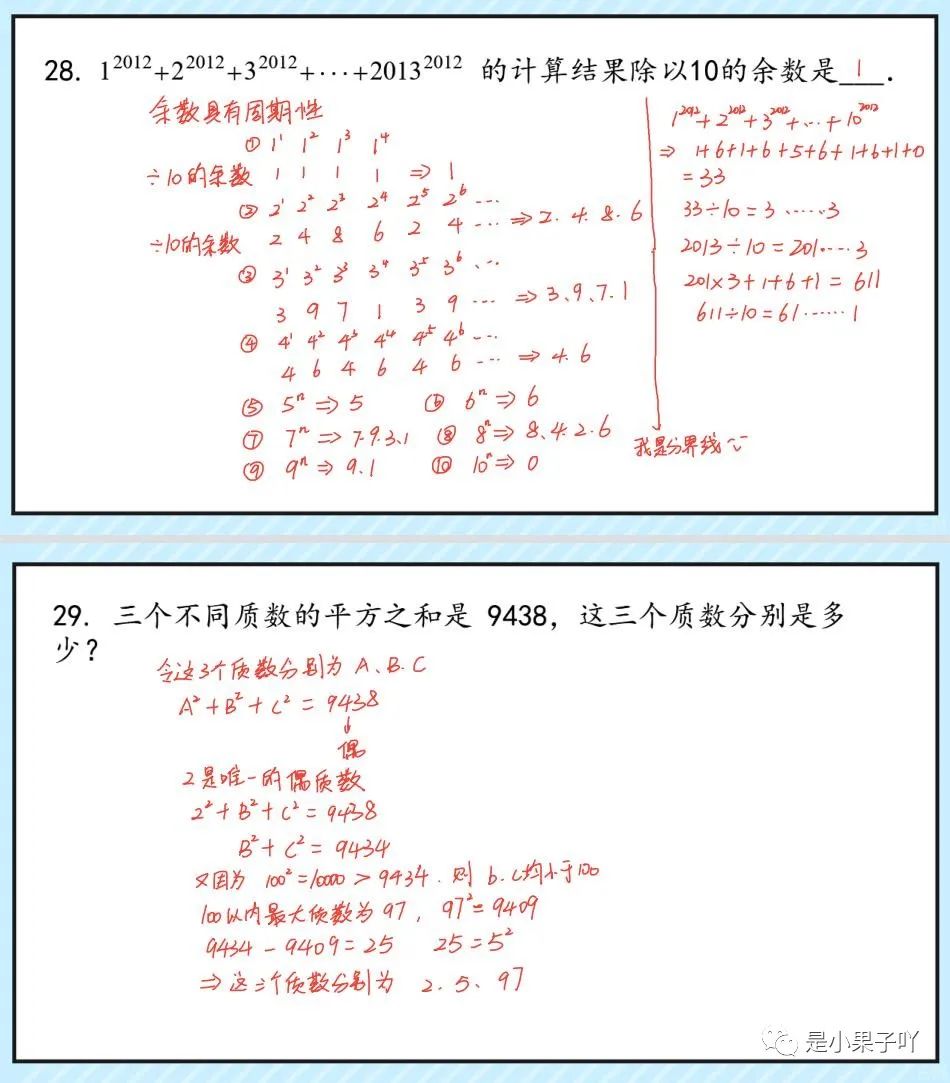 28. 1^2012+2^2012+3^2012+···+2013^2012 的计算结果除以10的余数是 1 .
余数具有周期性
① 1^1 1^2 1^3 1^4
÷10的余数 1 1 1 1 ⇒ 1
② 2^1 2^2 2^3 2^4 2^5 2^6 ···
÷10的余数 2 4 8 6 2 4 ··· ⇒ 2.4.8.6
③ 3^1 3^2 3^3 3^4 3^5 3^6 ···
3 9 7 1 3 9 ··· ⇒ 3、9、7.1
④ 4^1 4^2 4^3 4^4 4^5 4^6 ···
4 6 4 6 4 6 ··· ⇒ 4.6
⑤ 5^n ⇒ 5 ⑥ 6^n ⇒ 6
⑦ 7^n ⇒ 7.9.3.1 ⑧ 8^n ⇒ 8.4.2.6
⑨ 9^n ⇒ 9.1 ⑩ 10^n ⇒ 0
1^2012+2^2012+3^2012+···+10^2012
⇒ 1+6+1+6+5+6+1+6+1+0
=33
33÷10=3······3
2013÷10=201····3
201×3+1+6+1=611
611÷10=61······1
我是分界线
29. 三个不同质数的平方之和是 9438，这三个质数分别是多
少？
令这3个质数分别为 A、B.C
A²+B²+C²=9438
↓
偶
2是唯一的偶质数
2²+B²+C²=9438
B²+C²=9434
又因为 100²=10000>9434.则 b.c均小于100
100以内最大质数为97，97²=9409
9434-9409=25 25=5²
⇒ 这三个质数分别为 2.5、97
是小果子吖